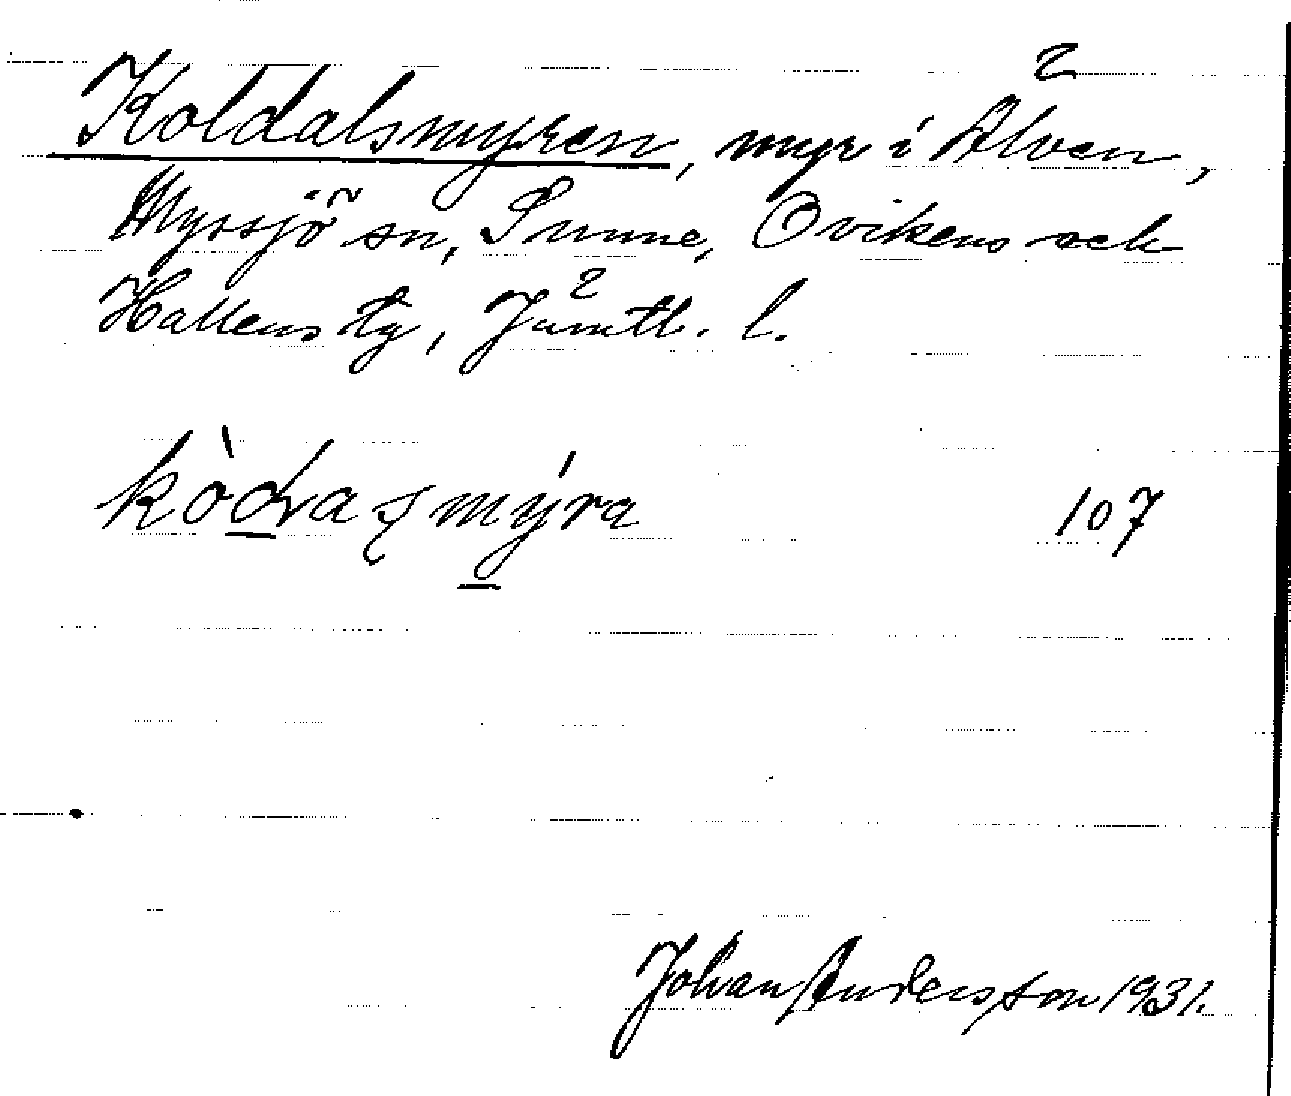 Koldalsmyren, myr i Älven,
Myssjö sn, Sunne, Ovikens och
Hallens tg, Jämtl. l.
107
Johan Andersson 1931.